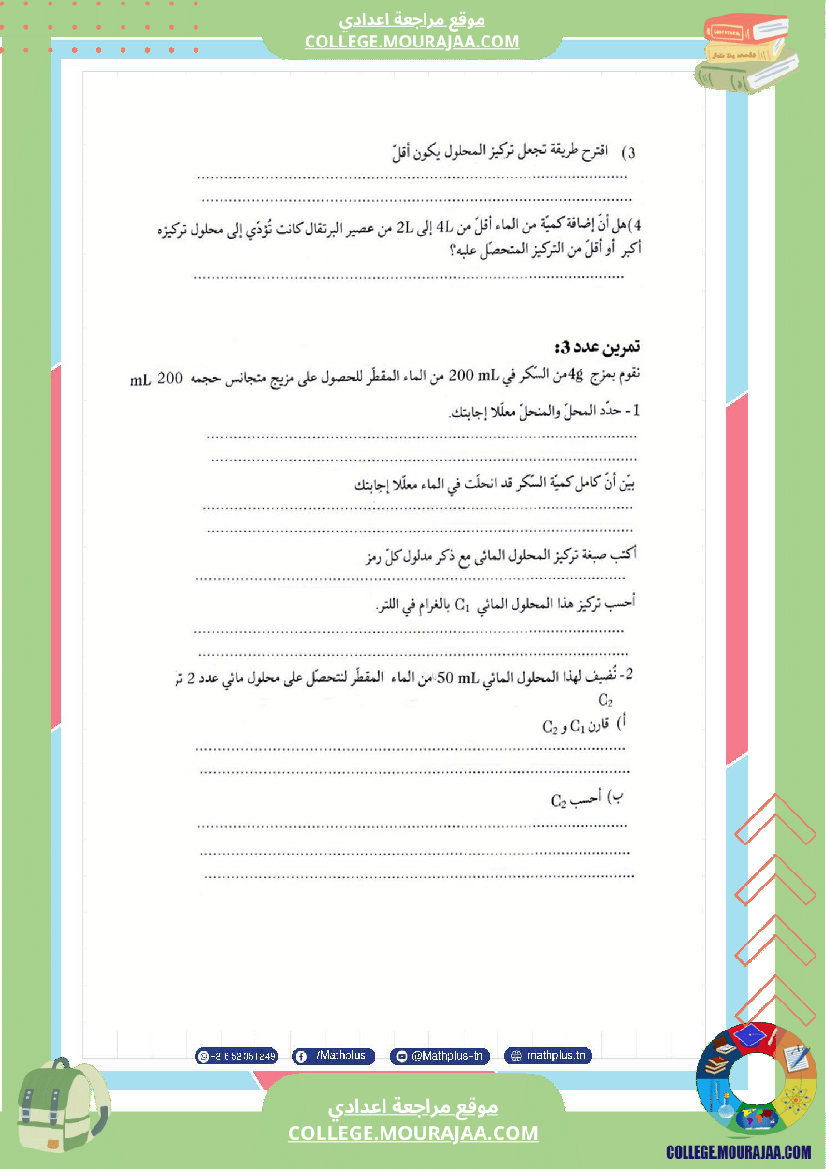 موقع مراجعة اعدادي
COLLEGE.MOURAJAA.COM
3) اقترح طريقة تجعل تركيز المحلول يكون أقلّ
4) هل أنّ إضافة كميّة من الماء أقلّ من 4L إلى 2L من عصير البرتقال كانت تُؤدّي إلى محلول تركيزه
أكبر أو أقلّ من التركيز المتحصّل عليه؟
تمرين عدد 3:
نقوم بمزج 4g من السّكر في 200 mL من الماء المقطّر للحصول على مزيج متجانس حجمه 200 mL
1- حدّد المحلّ والمنحلّ معلّلا إجابتك.
بيّن أنّ كامل كميّة السّكر قد انحلّت في الماء معلّلا إجابتك
أكتب صيغة تركيز المحلول المائي مع ذكر مدلول كلّ رمز
أحسب تركيز هذا المحلول المائي C₁ بالغرام في اللتر.
2- نُضيف لهذا المحلول المائي 50 mL من الماء المقطّر لنتحصّل على محلول مائي عدد 2 تر
C₂
أ) قارن C₁ و C₂
ب) أحسب C₂
/Mathplus
@Mathplus-tn
mathplus.tn
موقع مراجعة اعدادي
COLLEGE.MOURAJAA.COM
COLLEGE.MOURAJAA.COM